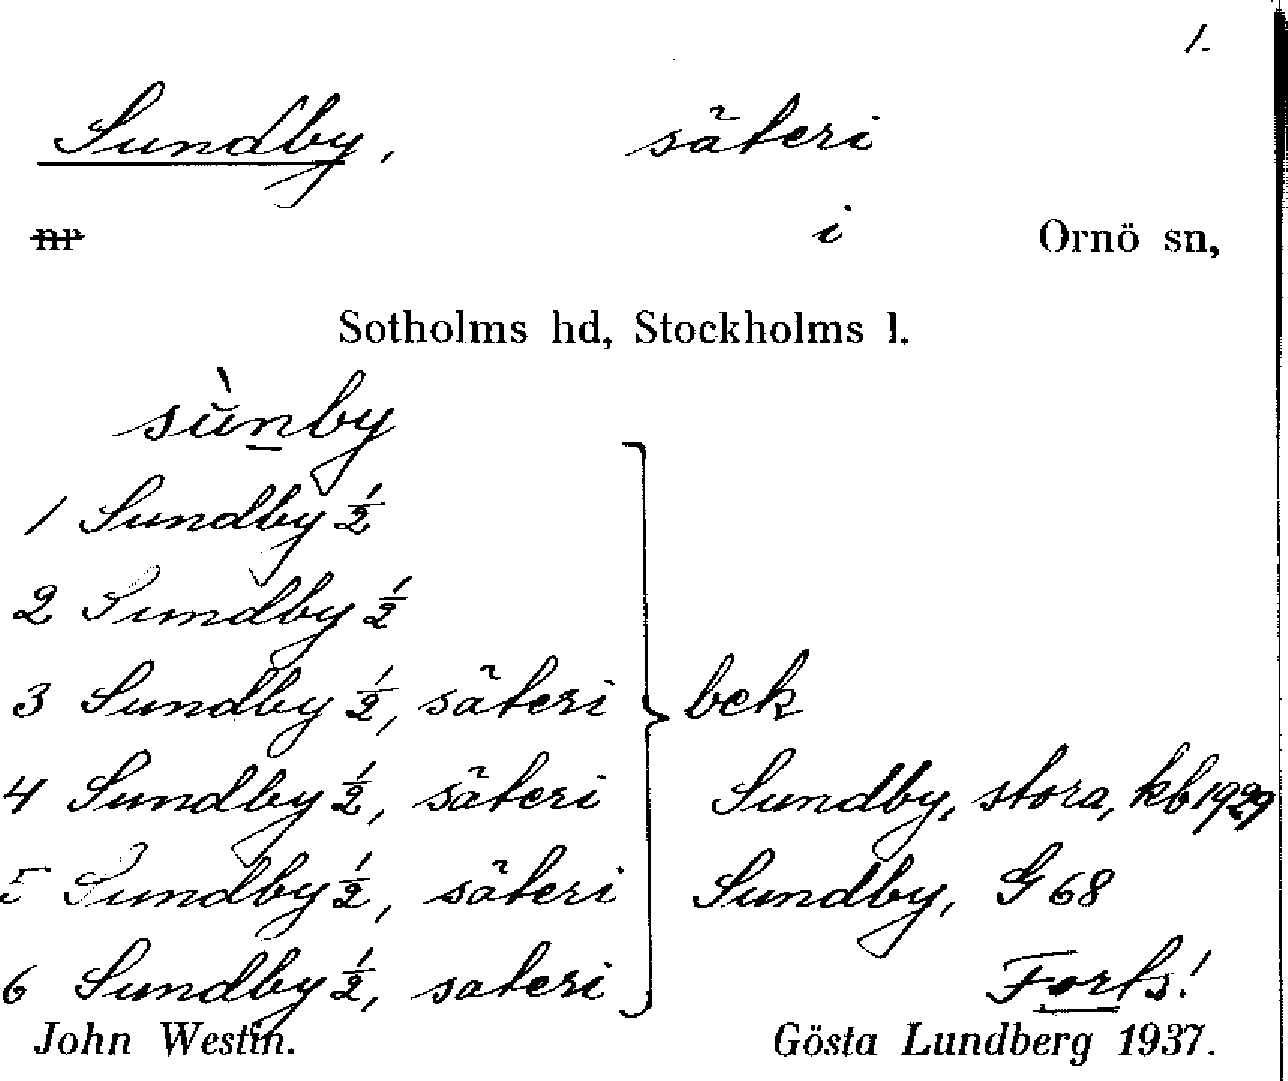 1.
Sundby, säteri
nr i Ornö sn,
Sotholms hd, Stockholms l.
sùnby
1 Sundby 1/2
2 Sundby 1/2
3 Sundby 1/2, säteri bek
4 Sundby 1/2, säteri Sundby, stora, kb 1929
5 Sundby 1/2, säteri Sundby, G 68
6 Sundby 1/2, sateri Forts!
John Westin. Gösta Lundberg 1937.